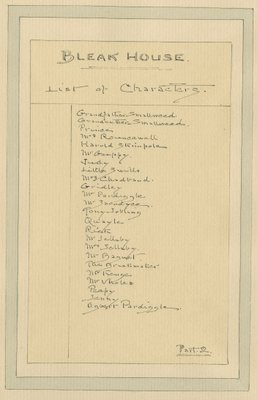 BLEAK HOUSE.
List of Characters.
Grandfather Smallweed.
Grandmother Smallweed.
Prince
Mrs Rouncewell
Harold Skimpole
Mr Guppy
Judy
Little Swills
Mrs Chadband.
Gridley
Mr Pardiggle
Mr Jarndyce.
Tony Jobling
Quayle
Rick
Mr Jellyby
Mrs Jellyby.
Mr Bagnet
The Brickmaker
Mr Kenge
Mr Vholes
Peepy
Jenny
Egbert Pardiggle.
Part 2.